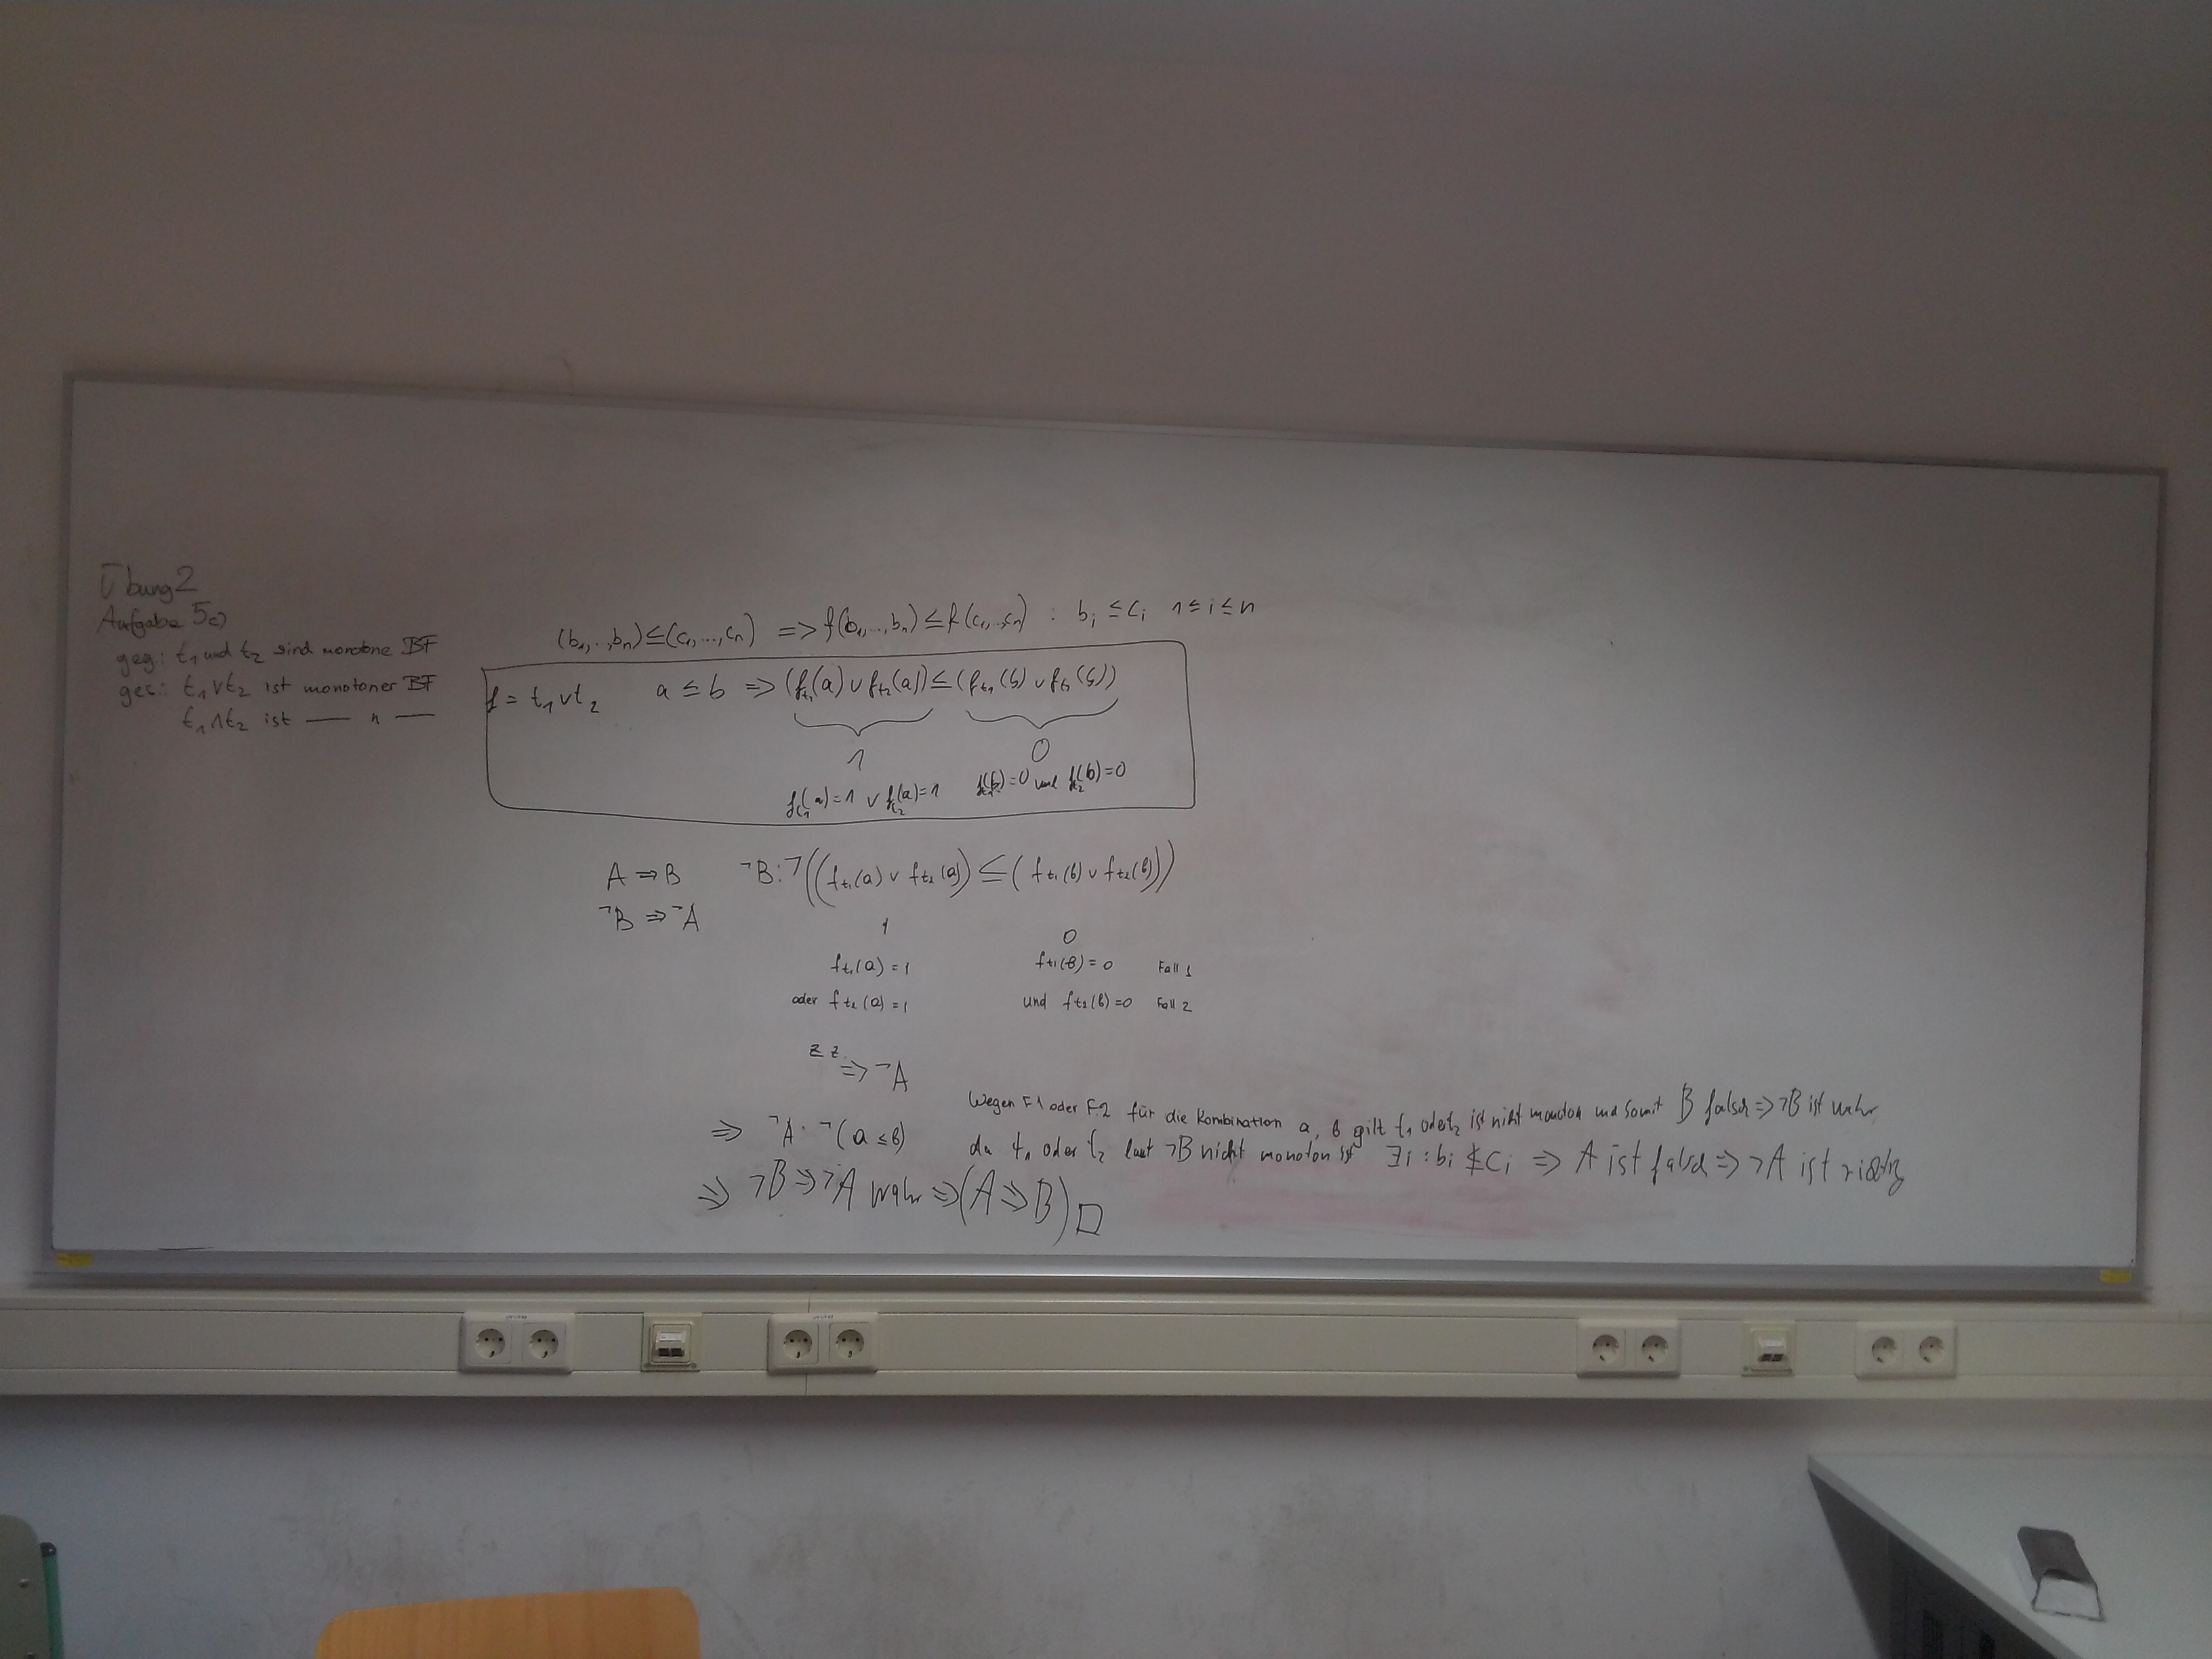 Übung 2
Aufgabe 5c)
geg: t₁ und t₂ sind monotone BF
ges: t₁ ∨ t₂ ist monotoner BF
t₁ ∧ t₂ ist — " —
(b₁,..,bₙ) ≤ (c₁,...,cₙ) => f(b₁,...,bₙ) ≤ f(c₁,...,cₙ) : bᵢ ≤ cᵢ 1 ≤ i ≤ n
f = t₁ ∨ t₂ a ≤ b => (f_t₁(a) ∨ f_t₂(a)) ≤ (f_t₁(b) ∨ f_t₂(b))
1 0
f_t₁(a)=1 ∨ f_t₂(a)=1 f_t₁(b)=0 und f_t₂(b)=0
A ⇒ B ¬B: ¬((f_t₁(a) ∨ f_t₂(a)) ≤ (f_t₁(b) ∨ f_t₂(b)))
¬B ⇒ ¬A
1 0
f_t₁(a) = 1 f_t₁(b) = 0 Fall 1
oder f_t₂(a) = 1 und f_t₂(b) = 0 Fall 2
z z.
⇒ ¬A
Wegen F1 oder F2 für die Kombination a, b gilt t₁ oder t₂ ist nicht monoton und somit B falsch ⇒ ¬B ist wahr
⇒ ¬A: ¬(a ≤ b) da t₁ oder t₂ laut ¬B nicht monoton ist ∃i : bᵢ ≰ cᵢ ⇒ A ist falsch ⇒ ¬A ist richtig
⇒ ¬B ⇒ ¬A wahr ⇒ (A ⇒ B) □